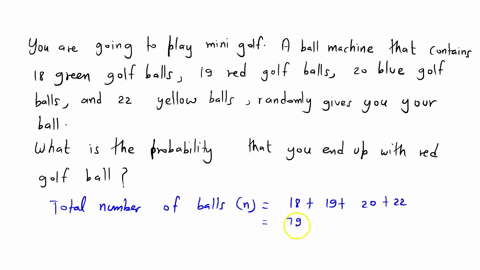 You are going to play mini golf. A ball machine that contains
18 green golf balls, 19 red golf balls, 20 blue golf
balls, and 22 yellow balls, randomly gives you your
ball.
What is the probability that you end up with red
golf ball?
Total number of balls (n) = 18 + 19 + 20 + 22
= 79